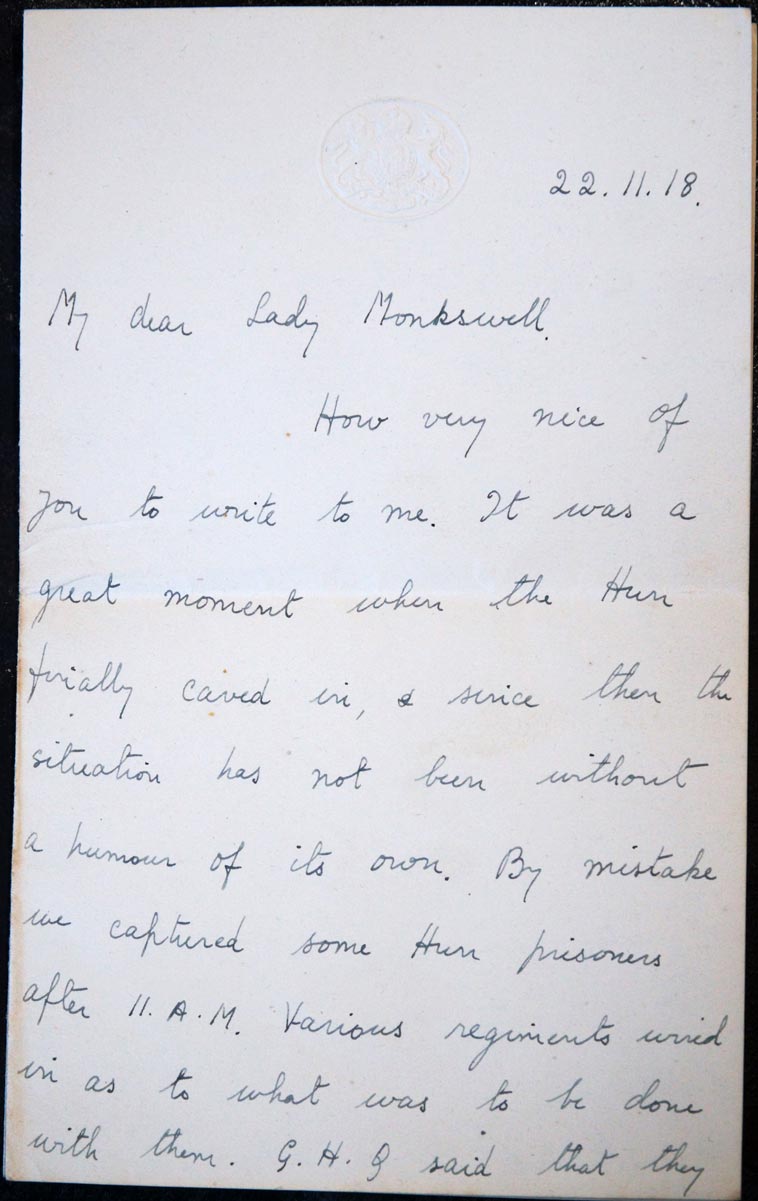 22.11.18.
My dear Lady Monkswell.
How very nice of
you to write to me. It was a
great moment when the Hun
finally caved in, & since then the
situation has not been without
a humour of its own. By mistake
we captured some Hun prisoners
after 11. A.M. Various regiments wired
in as to what was to be done
with them. G.H.Q said that they